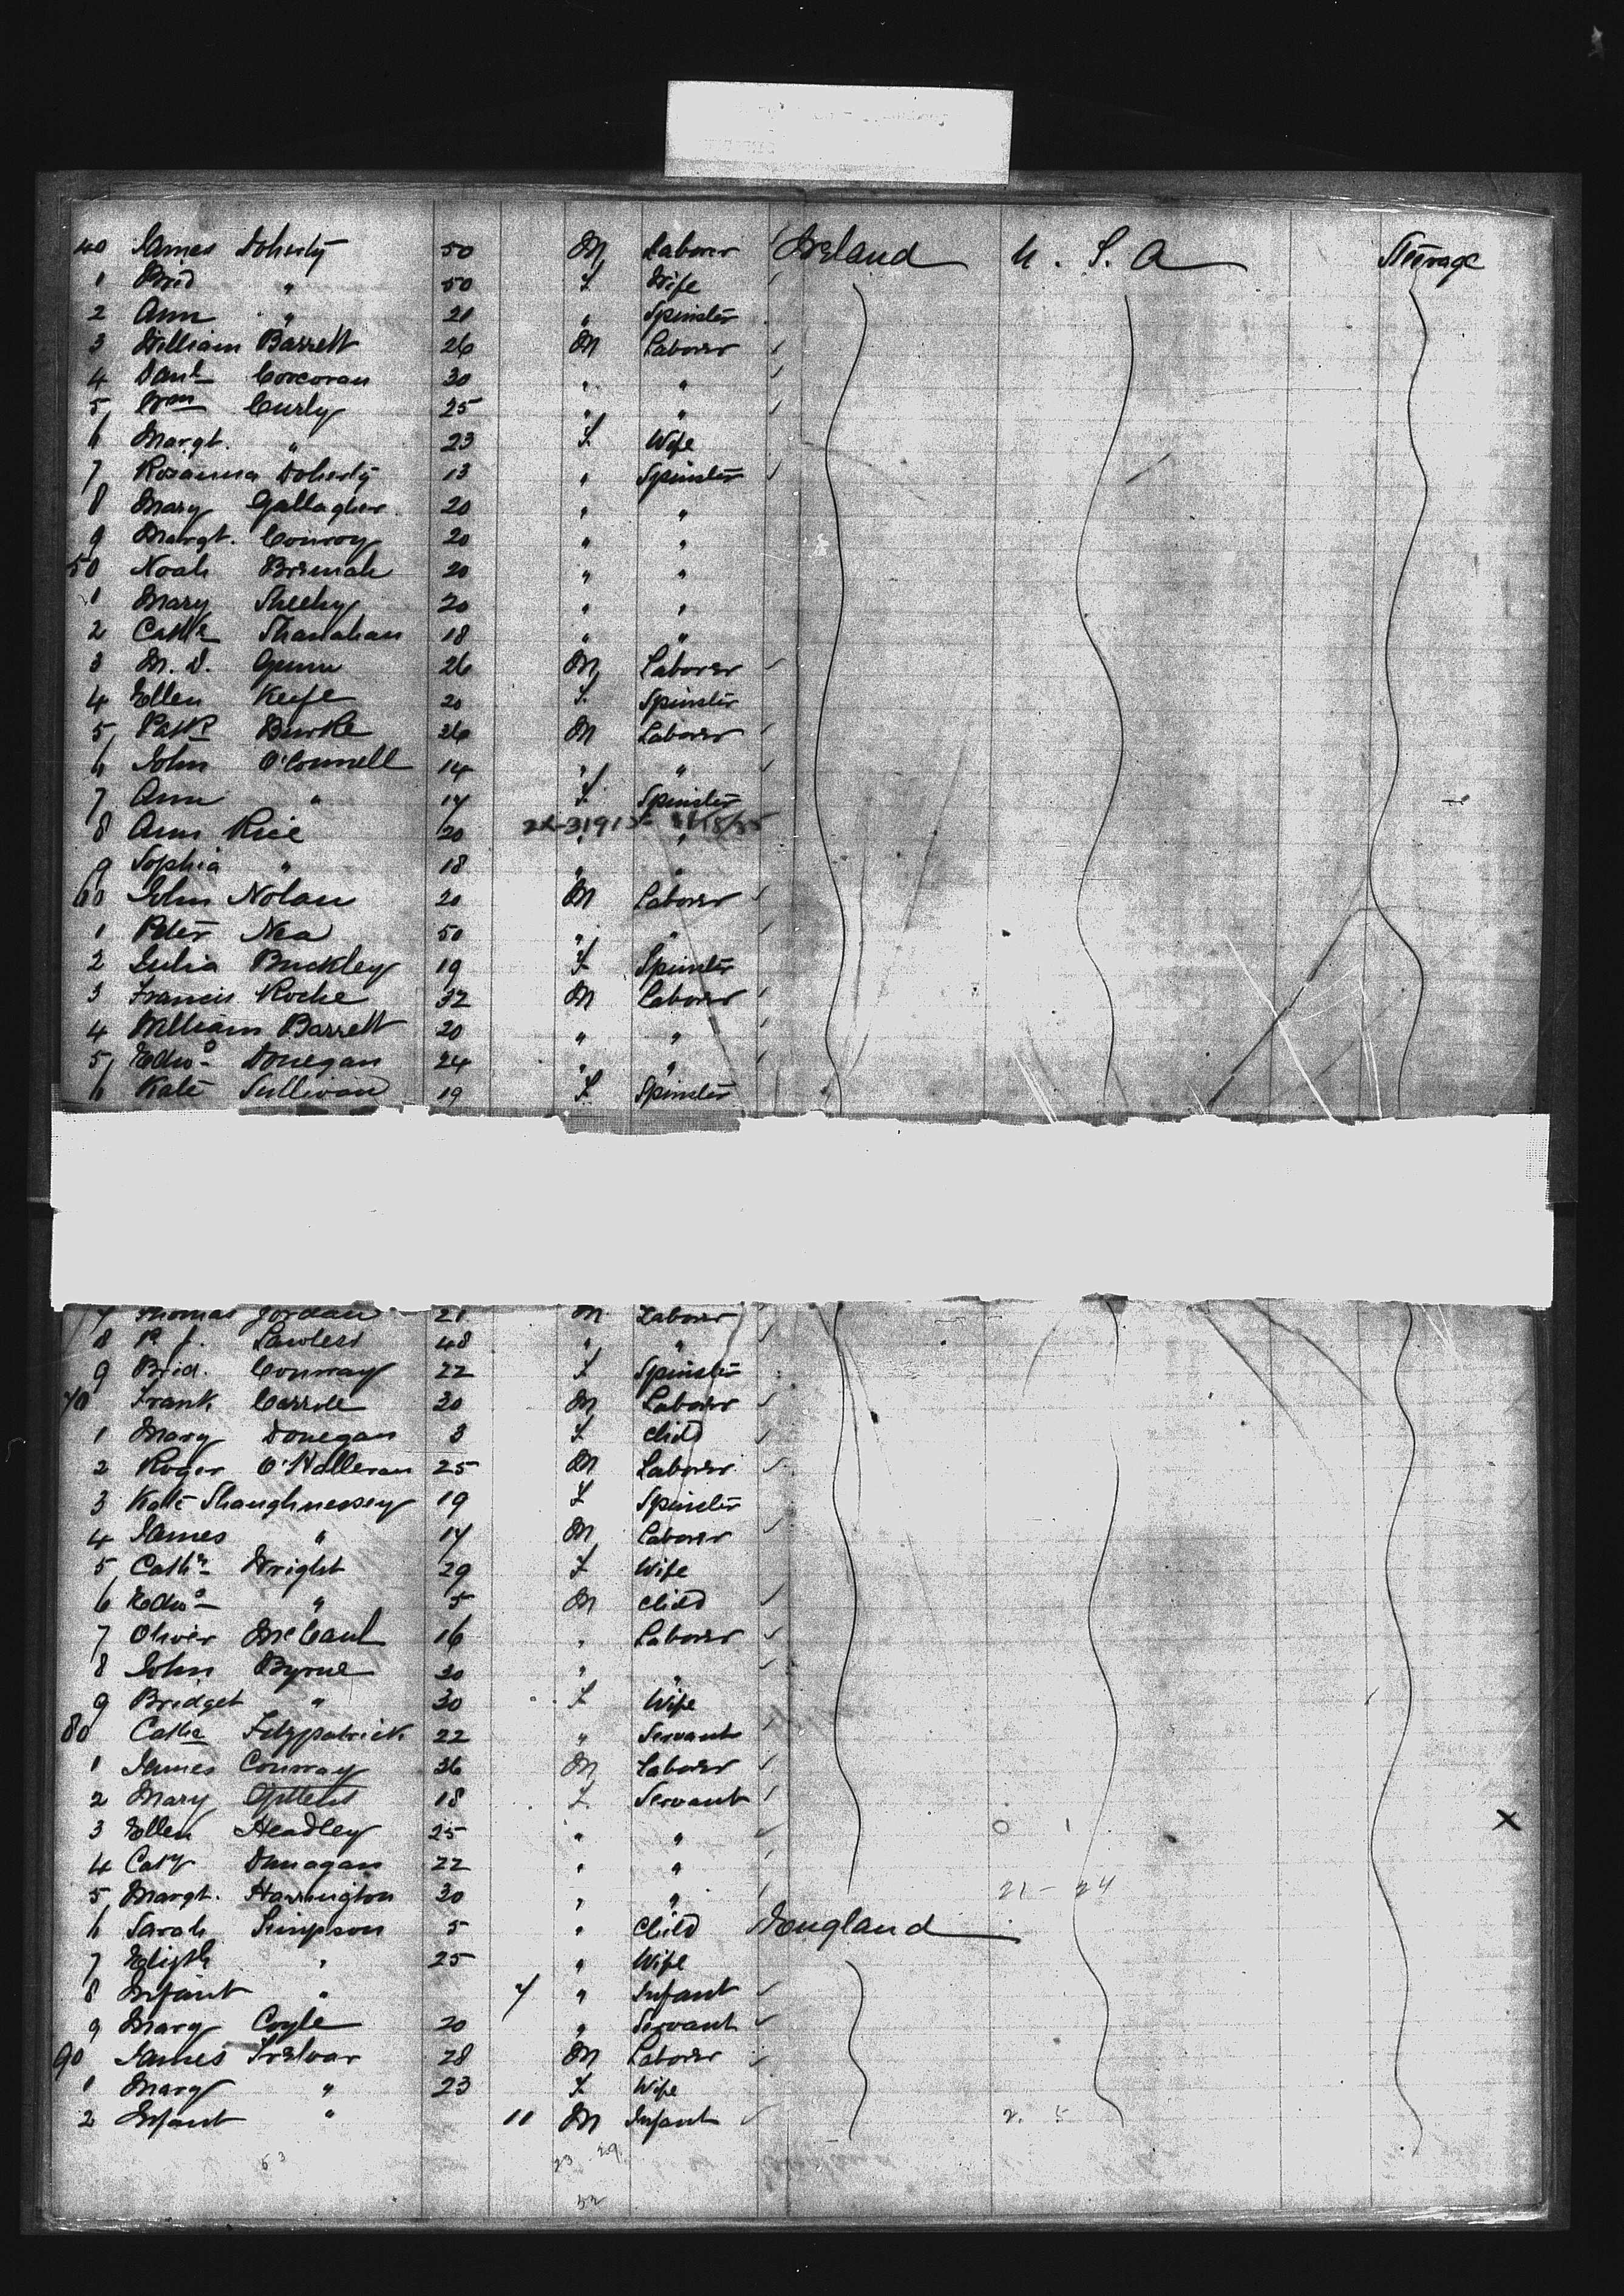 40 James Doherty 50 M Laborer Ireland U. S. A Steerage
1 Brid " 50 F Wife
2 Ann " 21 " Spinster
3 William Barrett 26 M Laborer
4 Danl Corcoran 30 " "
5 Wm Curly 25 " "
6 Margt. " 23 F Wife
7 Rosanna Doherty 13 " Spinster
8 Mary Gallagher 20 " "
9 Margt. Conroy 20 " "
50 Noah 20 " "
1 Mary Sheehy 20 " "
2 Cathe Shanahan 18 " "
3 M. D. 26 M Laborer
4 Ellen Keefe 20 F Spinster
5 Patk Burke 26 M Laborer
6 John O'Connell 14 " "
7 Ann " 17 F Spinster
8 Ann Rice 20 " "
9 Sophia " 18 " "
60 John Nolan 20 M Laborer
1 Peter Nea 50 " "
2 Julia Buckley 19 F Spinster
3 Francis Roche 32 M Laborer
4 William Barrett 20 " "
5 Edwd Donegan 24 " "
6 Kate Sullivan 19 F Spinster
7 Thomas Jordan 21 M Laborer
8 P. J. Lawless 48 " "
9 Brid. Conway 22 F Spinster
70 Frank 30 M Laborer
1 Mary Donegan 3 F Child
2 Roger O'Halleran 25 M Laborer
3 Kate Shaughnessey 19 F Spinster
4 James " 17 M Laborer
5 Cathe Wright 29 F Wife
6 Edwd " 5 M Child
7 Oliver McCaul 16 " Laborer
8 John Byrne 30 " "
9 Bridget " 30 F Wife
80 Cathe Fitzpatrick 22 " Servant
1 James Conway 36 M Laborer
2 Mary 18 F Servant
3 Ellen Headley 25 " " 0 1 X
4 Cathe Dunagan 22 " "
5 Margt. Harrington 30 " " 21-24
6 Sarah Simpson 5 " Child England
7 Elizth " 25 " Wife
8 Infant " 7 " Infant
9 Mary Coyle 20 " Servant
90 James Trelvar 28 M Laborer
1 Mary " 23 F Wife
2 Infant " 11 M Infant 2. 5
53 23 29
52